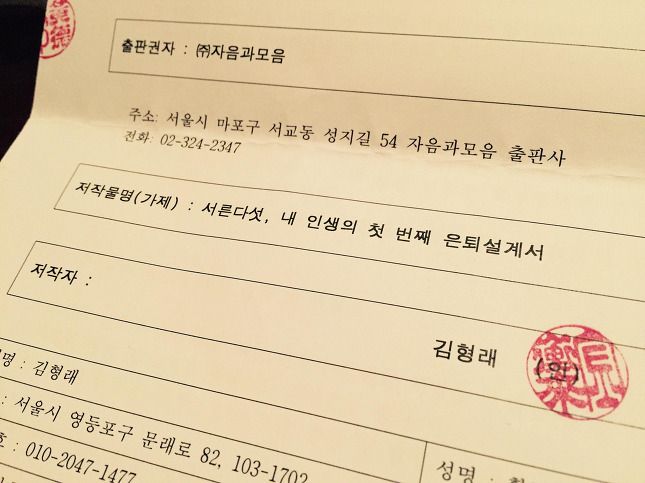 출판권자 : ㈜자음과모음
주소: 서울시 마포구 서교동 성지길 54 자음과모음 출판사
전화: 02-324-2347
저작물명(가제) : 서른다섯, 내 인생의 첫 번째 은퇴설계서
저작자 :
김형래 (인)
명 : 김형래
: 서울시 영등포구 문래로 82, 103-1702
호 : 010-2047-1477
성명 :